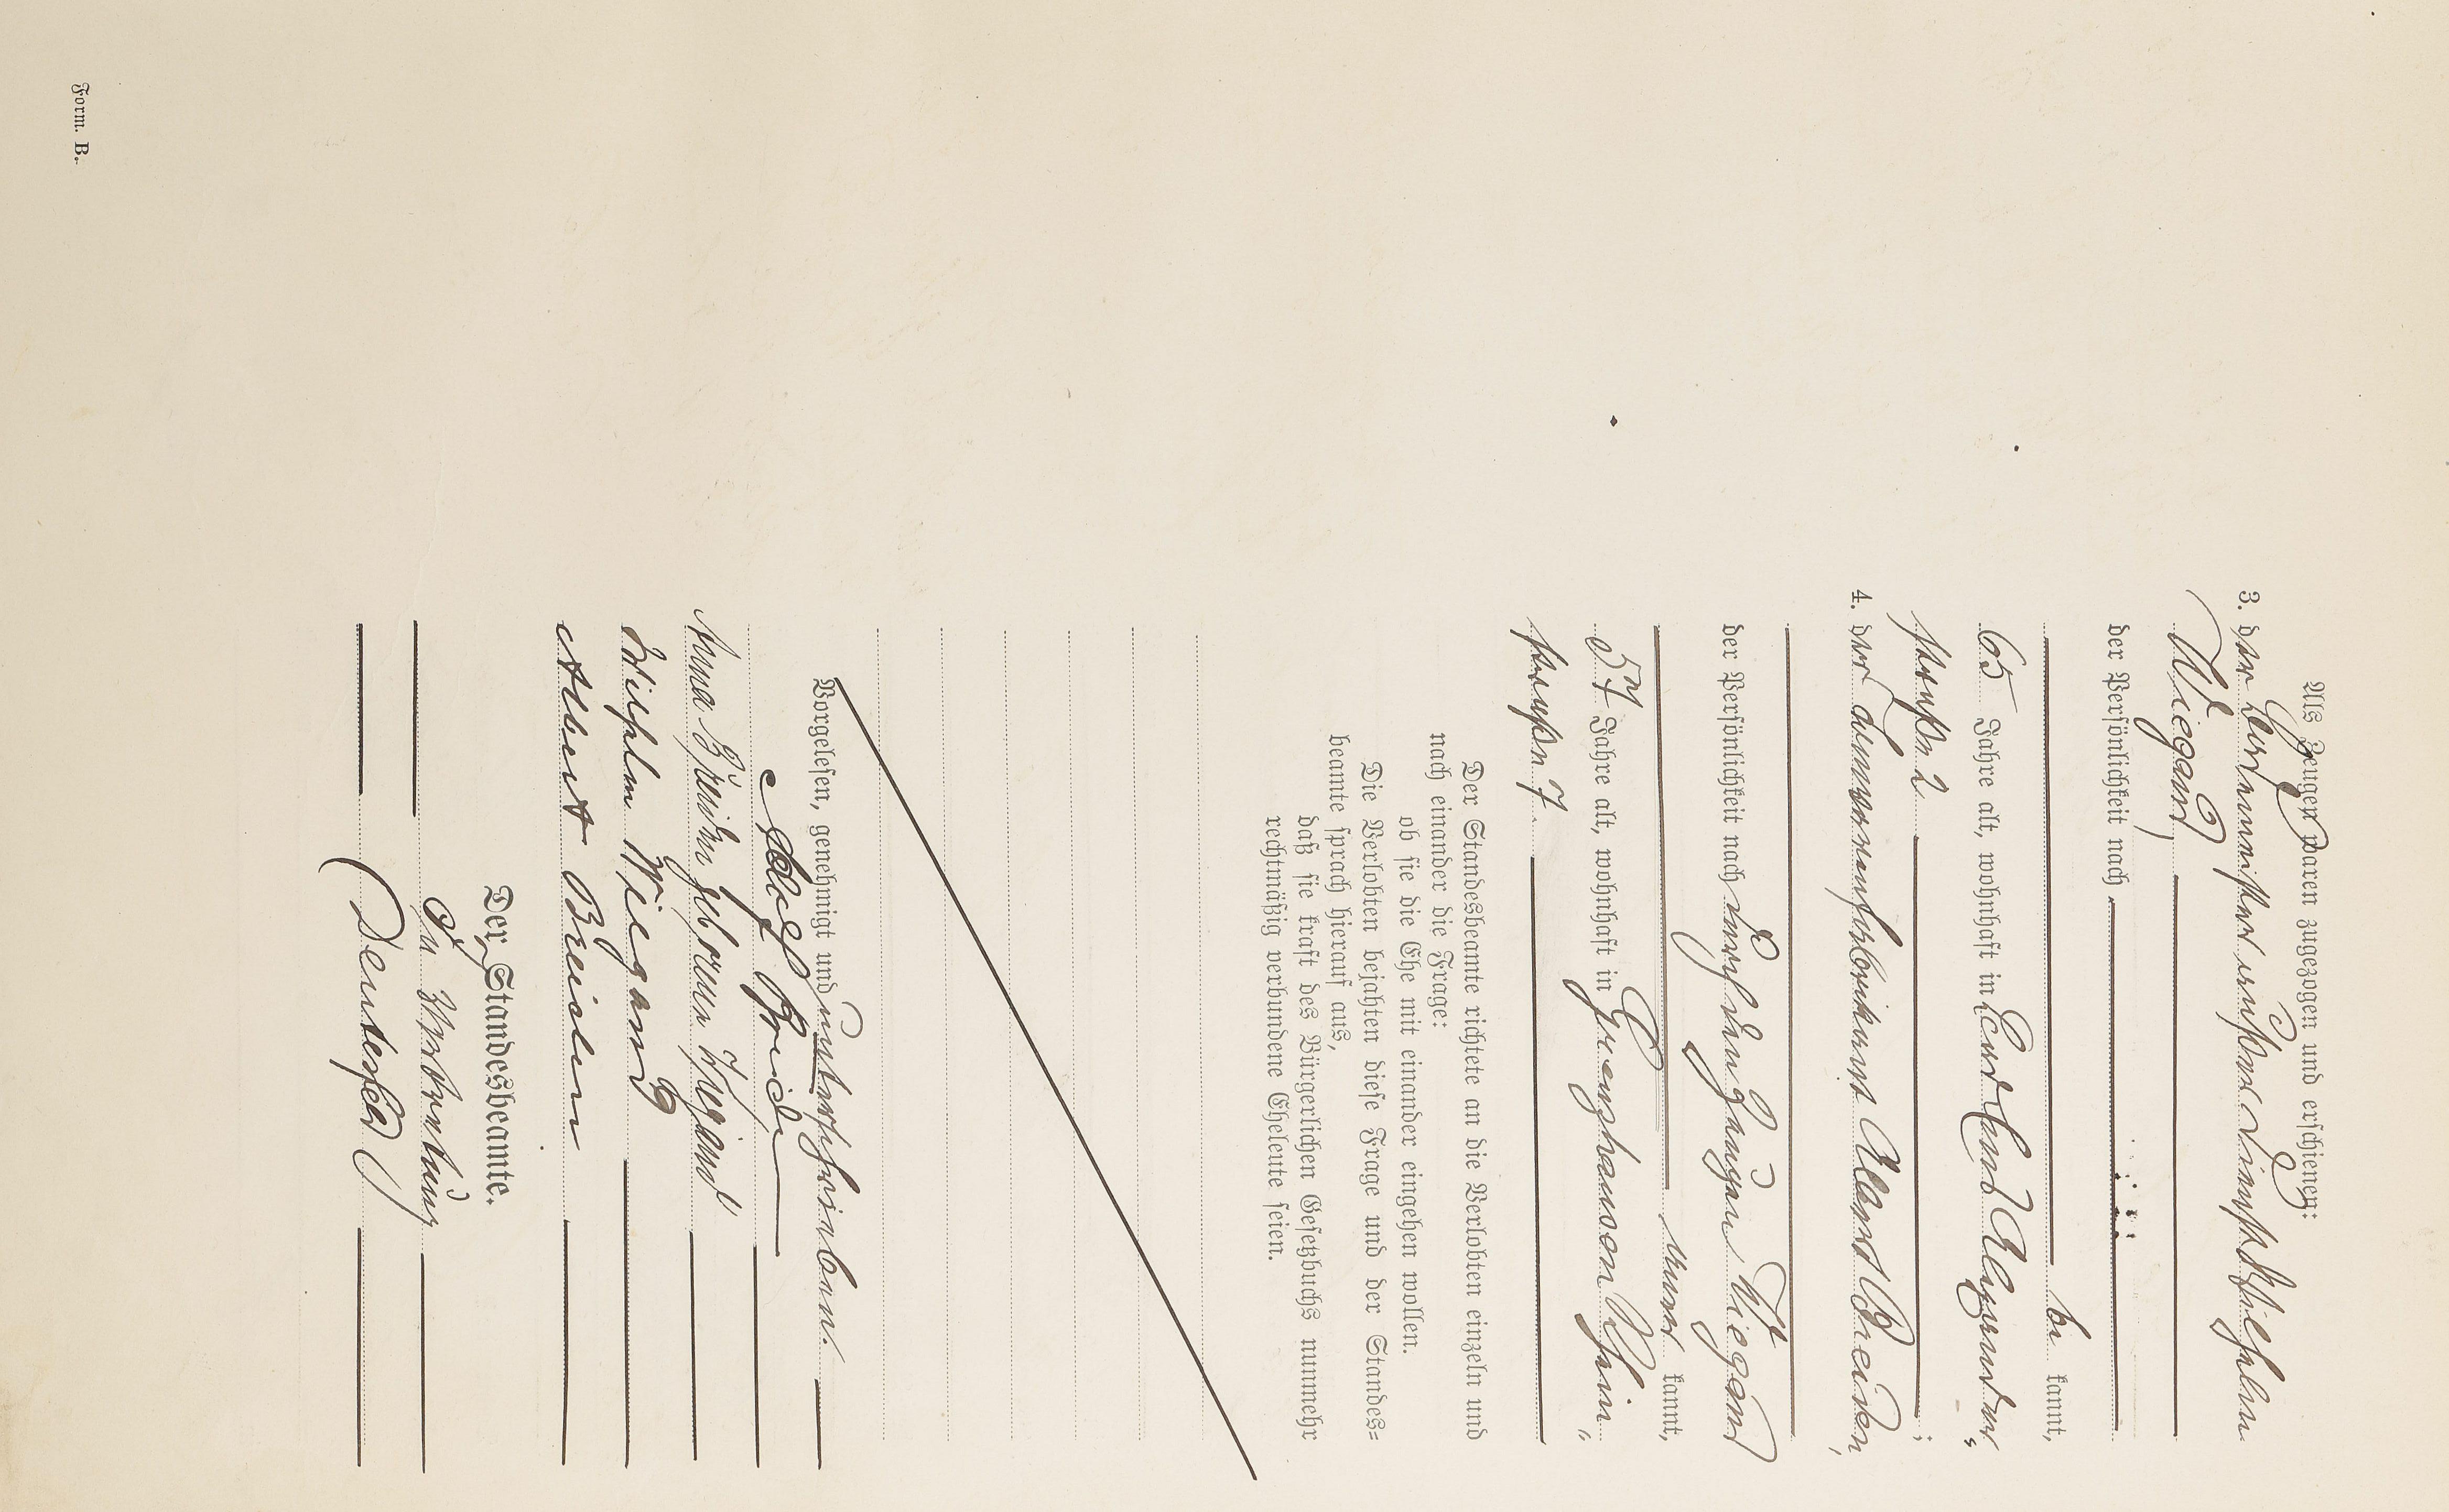 Als Zeugen waren zugezogen und erschienen:
3. der Wilhelm
Wiegand
der Persönlichkeit nach
be kannt,
65 Jahre alt, wohnhaft in Alexander-
straße 2 ;
4. der Albert Breiden,
der Persönlichkeit nach durch den Zeugen Wiegand
anerkannt,
57 Jahre alt, wohnhaft in Grenzhausen Rhein-
straße 7.
Der Standesbeamte richtete an die Verlobten einzeln und
nach einander die Frage:
ob sie die Ehe mit einander eingehen wollen.
Die Verlobten bejahten diese Frage und der Standes-
beamte sprach hierauf aus,
daß sie kraft des Bürgerlichen Gesetzbuchs nunmehr
rechtmäßig verbundene Eheleute seien.
Vorgelesen, genehmigt und unterschrieben.
Adolf Breiden
Anna Breiden geborene Wiegand
Wilhelm Wiegand
Albert Breiden
Der Standesbeamte.
In Vertretung
(Deutesfeld)
Form. B.